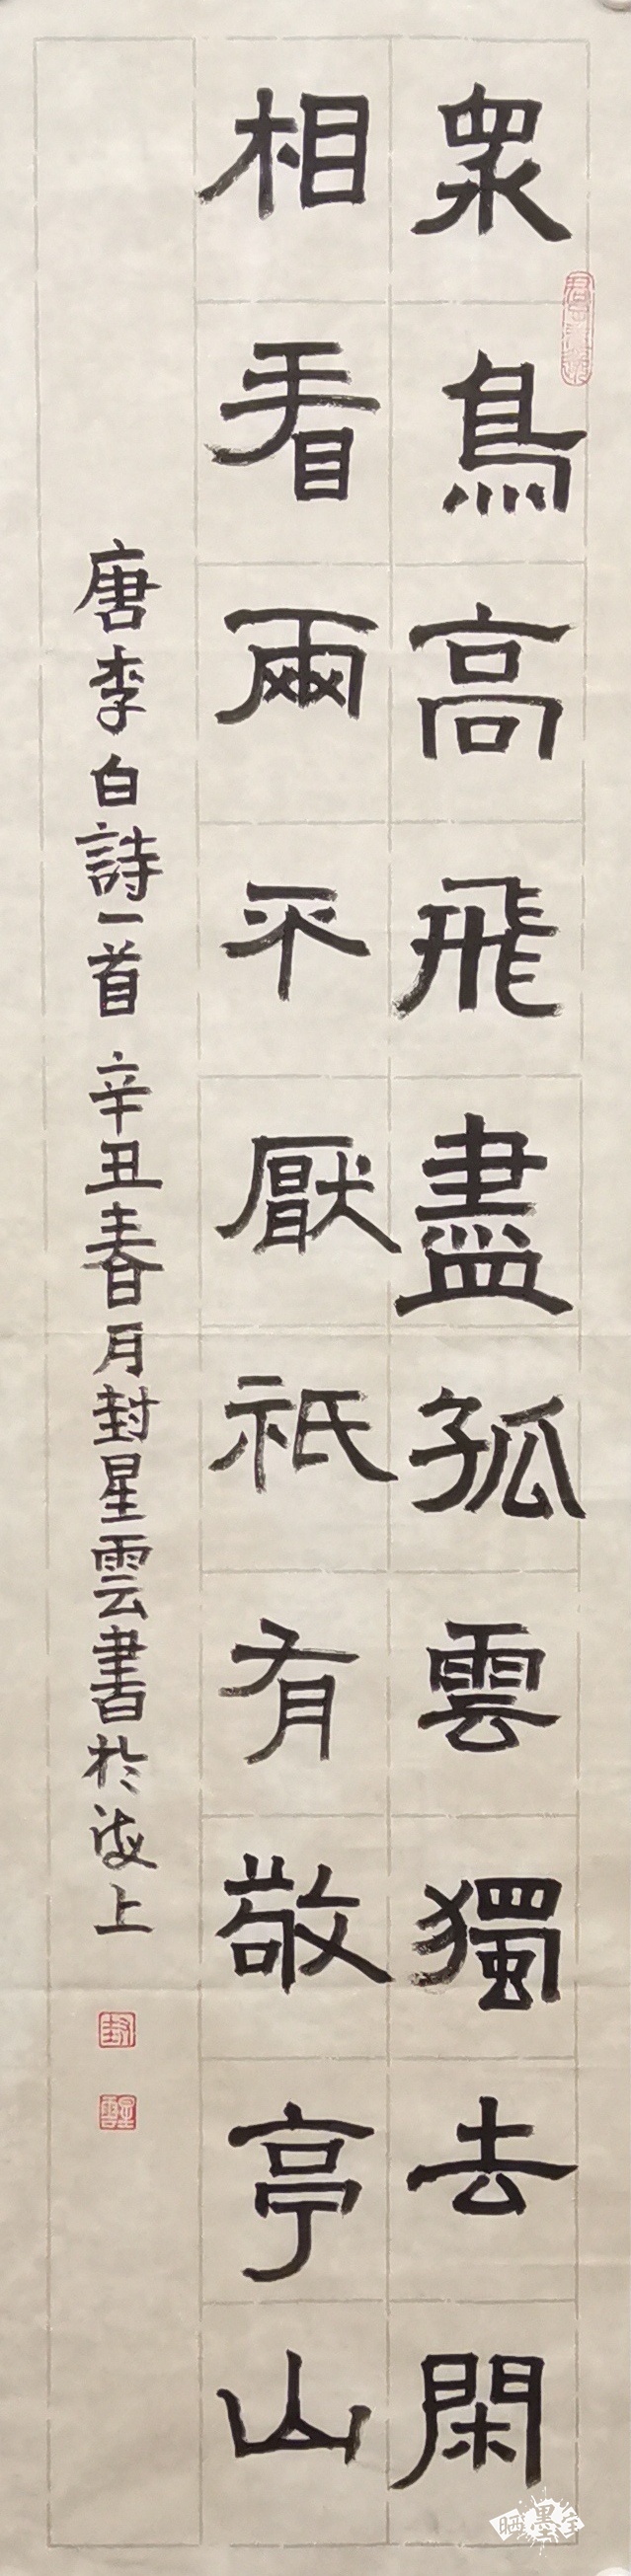 眾鳥高飛盡孤雲獨去閑
相看兩不厭祇有敬亭山
唐李白詩一首 辛丑春月封星雲書於海上
封
星雲
晒墨宝